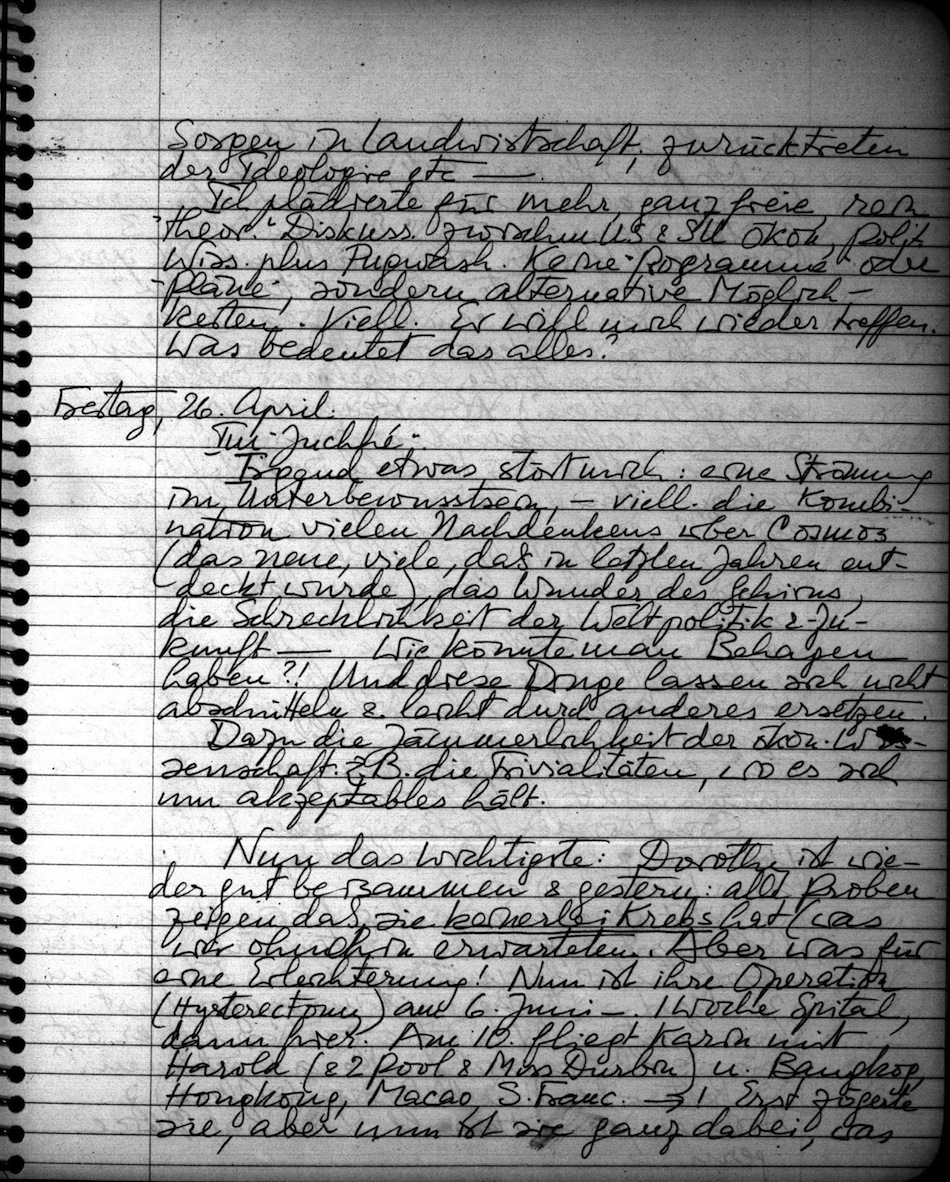 Sorgen in Landwirtschaft, zurücktreten
der Ideologie etc —.
Ich plädierte für mehr, ganz freie, rein
"theor." Diskuss. zwischen US & SU ökon, polit
Wiss. plus Pugwash. Keine "Programme" oder
"Pläne", sondern alternative Möglich-
keiten. Viell. Er will mich wieder treffen.
Was bedeutet das alles?
Freitag, 26. April.
Irgend etwas stört mich: eine Strömung
im Unterbewusstsein, – viell. die Kombi-
nation vielen Nachdenkens über Cosmos
(das neue, viele, das in letzten Jahren ent-
deckt wurde), das Wunder des Gehirns,
die Schrecklichkeit der Weltpolitik & Zu-
kunft — Wie könnte man Behagen
haben?! Und diese Dinge lassen sich nicht
abschütteln & leicht durch anderes ersetzen.
Dazu die Jämmerlichkeit der ökon. Wis-
senschaft: z.B. die Trivialitäten, wo es sich
um akzeptables hält.
Nun das Wichtigste: Dorothy ist wie-
der gut beisammen & gestern: alle Proben
zeigen das sie keinerlei Krebs hat (was
wir ohnehin erwarteten. Aber was für
eine Erleichterung! Nun ist ihre Operation
(Hysterectomy) am 6. Juni –. 1 Woche Spital,
dann hier. Am 10. fliegt Karin mit
Harold (& 2 Pool & Miss Durbin) n. Bangkog,
Hongkong, Macao, S. Franc. → ! Erst zögerte
sie, aber nun ist sie ganz dabei, was